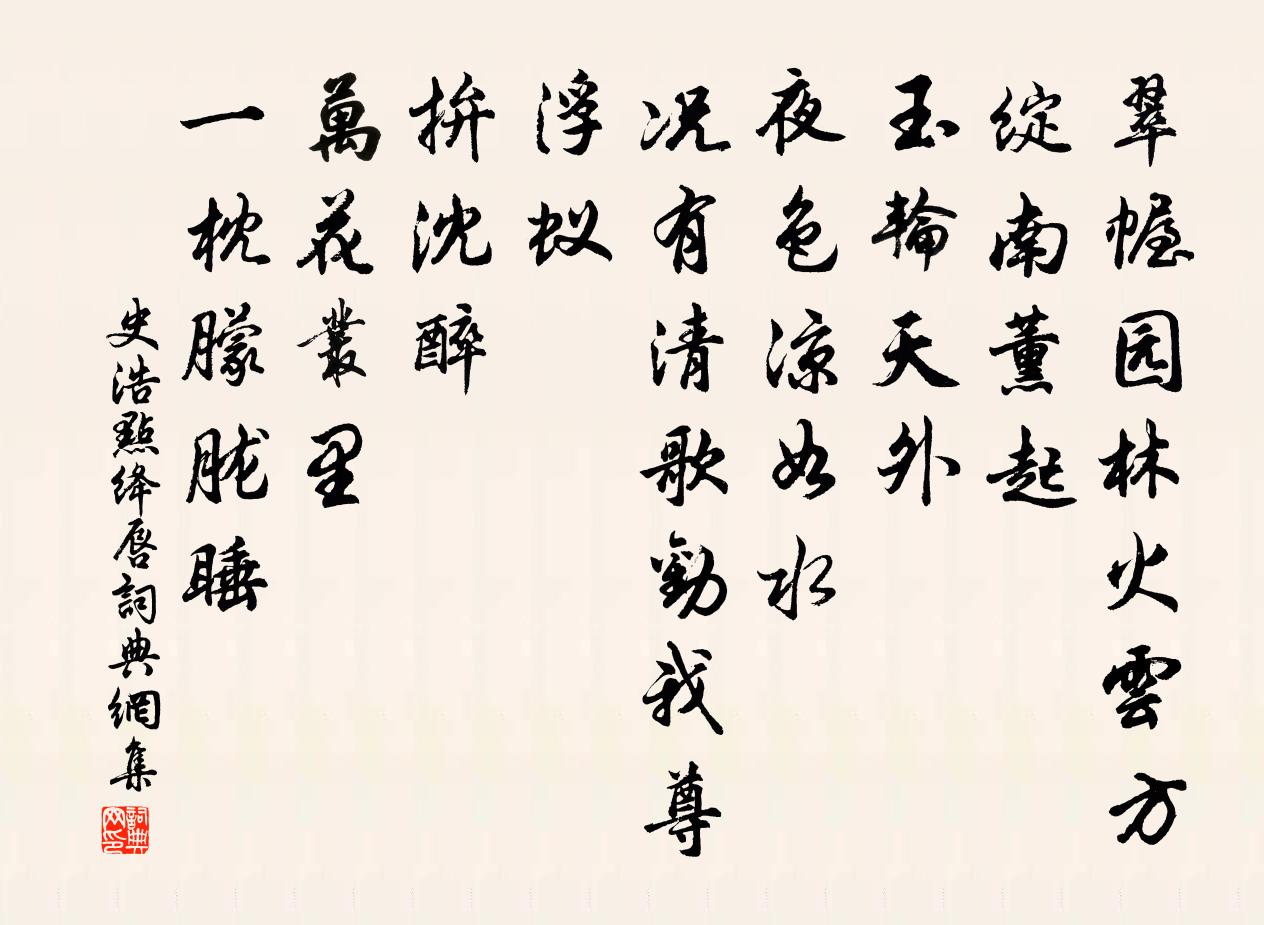 翠幄园林火雲方
綻南薰起
玉輪天外
夜色凉如水
况有清歌勸我尊
浮蚁
拚沈醉
萬花叢里
一枕朦胧睡
史浩點绛唇詞典網集
詞典
网印